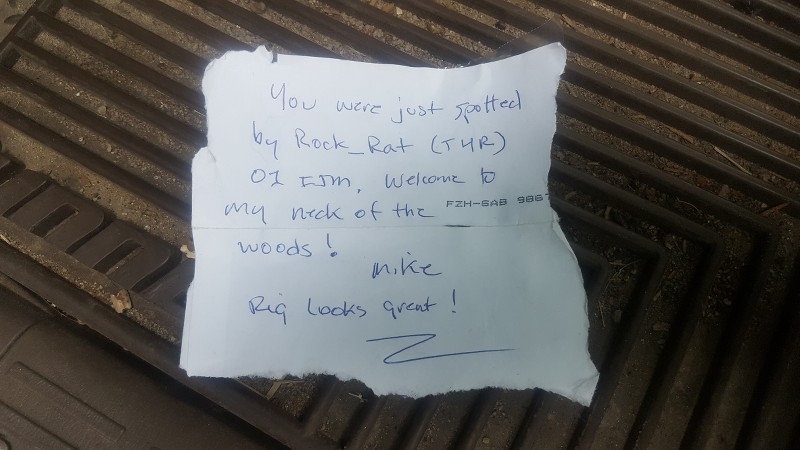 You were just spotted
by Rock_Rat (THR)
on IJM. Welcome to
my neck of the FZH-SAB 986
woods!
Mike
Rig looks great!